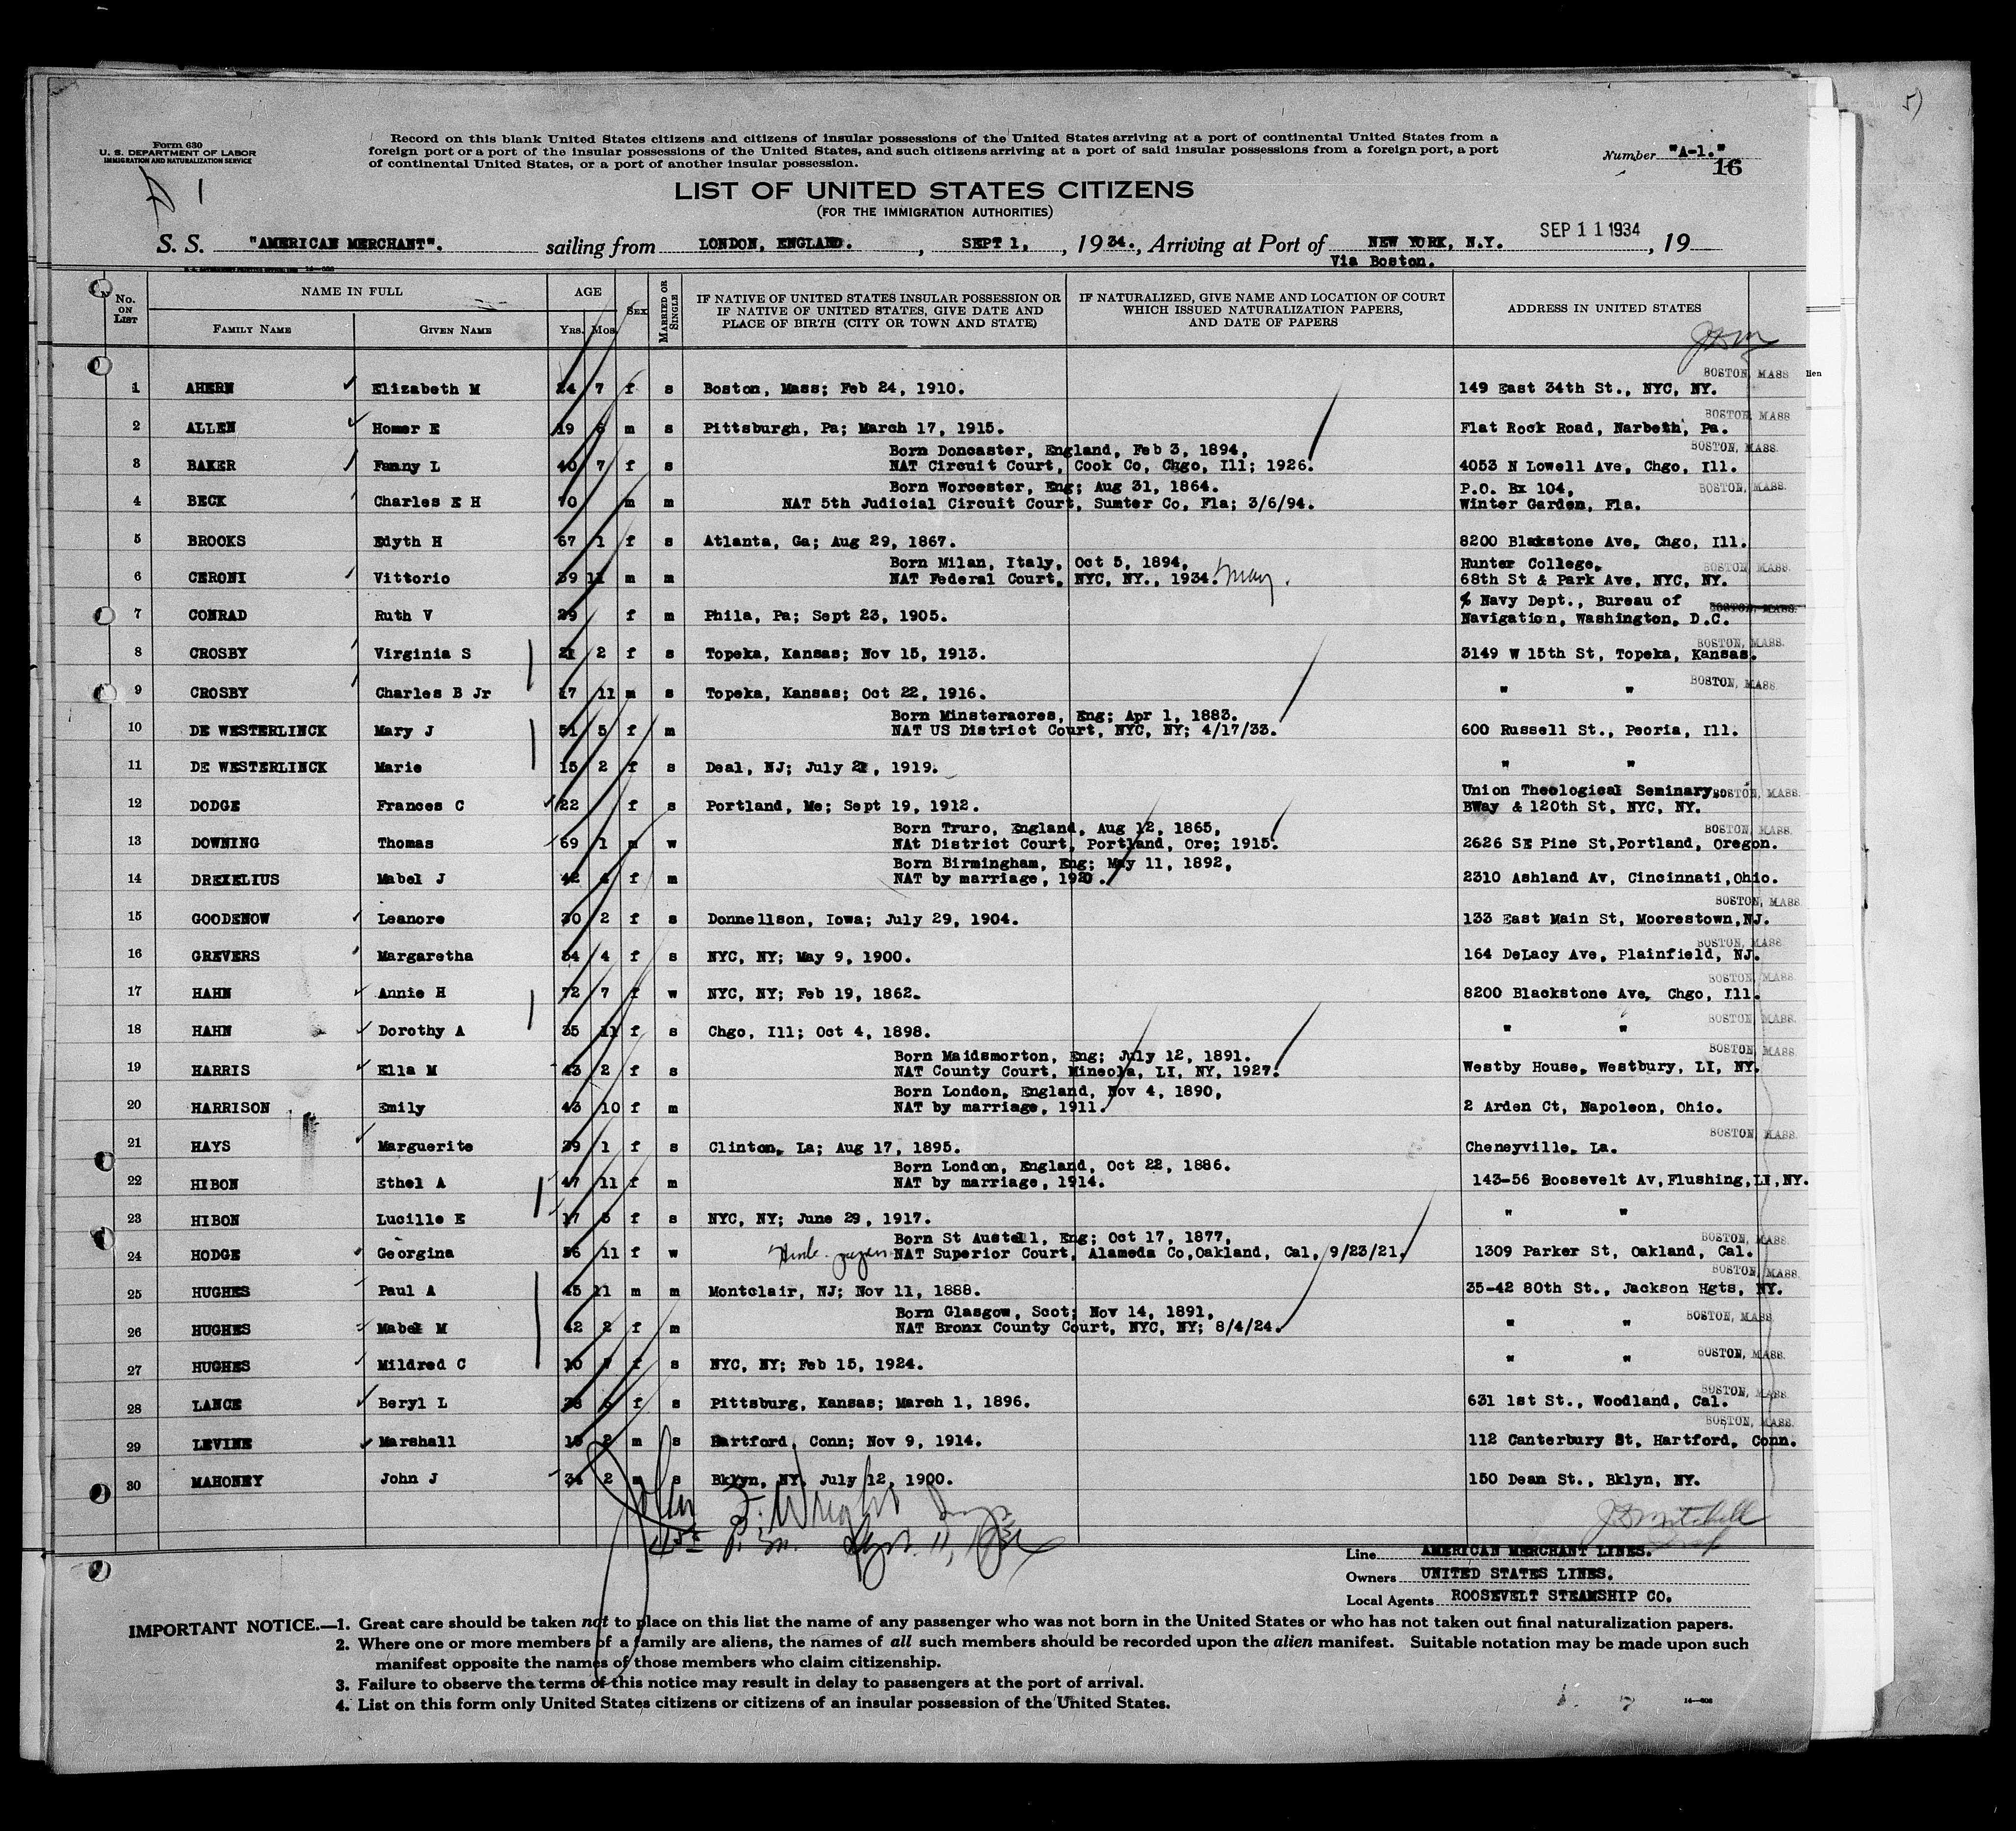 5)
Form 630
U. S. DEPARTMENT OF LABOR
IMMIGRATION AND NATURALIZATION SERVICE
Record on this blank United States citizens and citizens of insular possessions of the United States arriving at a port of continental United States from a
foreign port or a port of the insular possessions of the United States, and such citizens arriving at a port of said insular possessions from a foreign port, a port
of continental United States, or a port of another insular possession.
Number "A-1."
16
1
LIST OF UNITED STATES CITIZENS
(FOR THE IMMIGRATION AUTHORITIES)
S. S. "AMERICAN MERCHANT". sailing from LONDON, ENGLAND. , SEPT 1, , 1934., Arriving at Port of NEW YORK, N.Y. SEP 11 1934 , 19
Via Boston.
No. ON LIST NAME IN FULL FAMILY NAME GIVEN NAME AGE YRS. MOS. SEX MARRIED OR SINGLE
IF NATIVE OF UNITED STATES INSULAR POSSESSION OR IF NATIVE OF UNITED STATES, GIVE DATE AND PLACE OF BIRTH (CITY OR TOWN AND STATE)
IF NATURALIZED, GIVE NAME AND LOCATION OF COURT WHICH ISSUED NATURALIZATION PAPERS, AND DATE OF PAPERS
ADDRESS IN UNITED STATES
BOSTON, MASS
1 AHERN Elizabeth M 24 7 f s Boston, Mass; Feb 24, 1910. 149 East 34th St., NYC, NY.
BOSTON, MASS
2 ALLEN Homer E 19 6 m s Pittsburgh, Pa; March 17, 1915. Flat Rock Road, Narbeth, Pa.
Born Doncaster, England, Feb 3, 1894, BOSTON, MASS.
3 BAKER Fanny L 40 7 f s NAT Circuit Court, Cook Co, Chgo, Ill; 1926. 4053 N Lowell Ave, Chgo, Ill.
Born Worcester, Eng; Aug 31, 1864. P.O. Bx 104, BOSTON, MASS.
4 BECK Charles E H 70 m m NAT 5th Judicial Circuit Court, Sumter Co, Fla; 3/6/94. Winter Garden, Fla.
5 BROOKS Edyth H 67 1 f s Atlanta, Ga; Aug 29, 1867. 8200 Blackstone Ave, Chgo, Ill.
Born Milan, Italy, Oct 5, 1894, Hunter College, BOSTON, MASS.
6 CERONI Vittorio 39 11 m m NAT Federal Court, NYC, NY., 1934. May. 68th St & Park Ave, NYC, NY.
% Navy Dept., Bureau of BOSTON, MASS.
7 CONRAD Ruth V 29 f m Phila, Pa; Sept 23, 1905. Navigation, Washington, D.C.
BOSTON, MASS.
8 CROSBY Virginia S 21 2 f s Topeka, Kansas; Nov 15, 1913. 3149 W 15th St, Topeka, Kansas.
BOSTON, MASS.
9 CROSBY Charles B Jr 17 11 m s Topeka, Kansas; Oct 22, 1916. " "
Born Minsteracres, Eng; Apr 1, 1883.
10 DE WESTERLINCK Mary J 51 5 f m NAT US District Court, NYC, NY; 4/17/33. 600 Russell St., Peoria, Ill.
11 DE WESTERLINCK Marie 15 2 f s Deal, NJ; July 21, 1919. " "
Union Theological Seminary, BOSTON, MASS.
12 DODGE Frances C 22 f s Portland, Me; Sept 19, 1912. BWay & 120th St, NYC, NY.
Born Truro, England, Aug 12, 1865, BOSTON, MASS.
13 DOWNING Thomas 69 1 m w NAt District Court, Portland, Ore; 1915. 2626 SE Pine St, Portland, Oregon.
Born Birmingham, Eng; May 11, 1892,
14 DREXELIUS Mabel J 42 4 f m NAT by marriage, 1920. 2310 Ashland Av, Cincinnati, Ohio.
BOSTON, MASS.
15 GOODENOW Leanore 30 2 f s Donnellson, Iowa; July 29, 1904. 133 East Main St, Moorestown, NJ.
BOSTON, MASS
16 GREVERS Margaretha 34 4 f s NYC, NY; May 9, 1900. 164 DeLacy Ave, Plainfield, NJ.
BOSTON, MASS.
17 HAHN Annie H 72 7 f w NYC, NY; Feb 19, 1862. 8200 Blackstone Ave, Chgo, Ill.
BOSTON, MASS.
18 HAHN Dorothy A 35 11 f s Chgo, Ill; Oct 4, 1898. " "
Born Maidsmorton, Eng; July 12, 1891. BOSTON, MASS
19 HARRIS Ella M 43 2 f s NAT County Court, Mineola, LI, NY, 1927. Westby House, Westbury, LI, NY.
Born London, England, Nov 4, 1890,
20 HARRISON Emily 43 10 f m NAT by marriage, 1911. 2 Arden Ct, Napoleon, Ohio.
BOSTON, MASS.
21 HAYS Marguerite 39 1 f s Clinton, La; Aug 17, 1895. Cheneyville, La.
Born London, England, Oct 22, 1886.
22 HIBON Ethel A 47 11 f m NAT by marriage, 1914. 143-56 Roosevelt Av, Flushing, LI, NY.
23 HIBON Lucille E 17 5 f s NYC, NY; June 29, 1917. " "
Born St Austell, Eng; Oct 17, 1877, BOSTON, MASS.
24 HODGE Georgina 56 11 f w NAT Superior Court, Alameda Co, Oakland, Cal, 9/23/21. 1309 Parker St, Oakland, Cal.
BOSTON, MASS.
25 HUGHES Paul A 45 11 m m Montclair, NJ; Nov 11, 1888. 35-42 80th St., Jackson Hgts, NY.
Born Glasgow, Scot; Nov 14, 1891, BOSTON, MASS
26 HUGHES Mabel M 42 2 f m NAT Bronx County Court, NYC, NY; 8/4/24. " "
BOSTON, MASS.
27 HUGHES Mildred C 10 7 f s NYC, NY; Feb 15, 1924. " "
BOSTON, MASS.
28 LANCE Beryl L 38 6 f s Pittsburg, Kansas; March 1, 1896. 631 1st St., Woodland, Cal.
BOSTON, MASS.
29 LEVINE Marshall 19 2 m s Hartford, Conn; Nov 9, 1914. 112 Canterbury St, Hartford, Conn.
30 MAHONEY John J 34 2 m s Bklyn, NY, July 12, 1900. 150 Dean St., Bklyn, NY.
Line AMERICAN MERCHANT LINES.
Owners UNITED STATES LINES.
Local Agents ROOSEVELT STEAMSHIP CO.
IMPORTANT NOTICE.—1. Great care should be taken not to place on this list the name of any passenger who was not born in the United States or who has not taken out final naturalization papers.
2. Where one or more members of a family are aliens, the names of all such members should be recorded upon the alien manifest. Suitable notation may be made upon such
manifest opposite the names of those members who claim citizenship.
3. Failure to observe the terms of this notice may result in delay to passengers at the port of arrival.
4. List on this form only United States citizens or citizens of an insular possession of the United States.